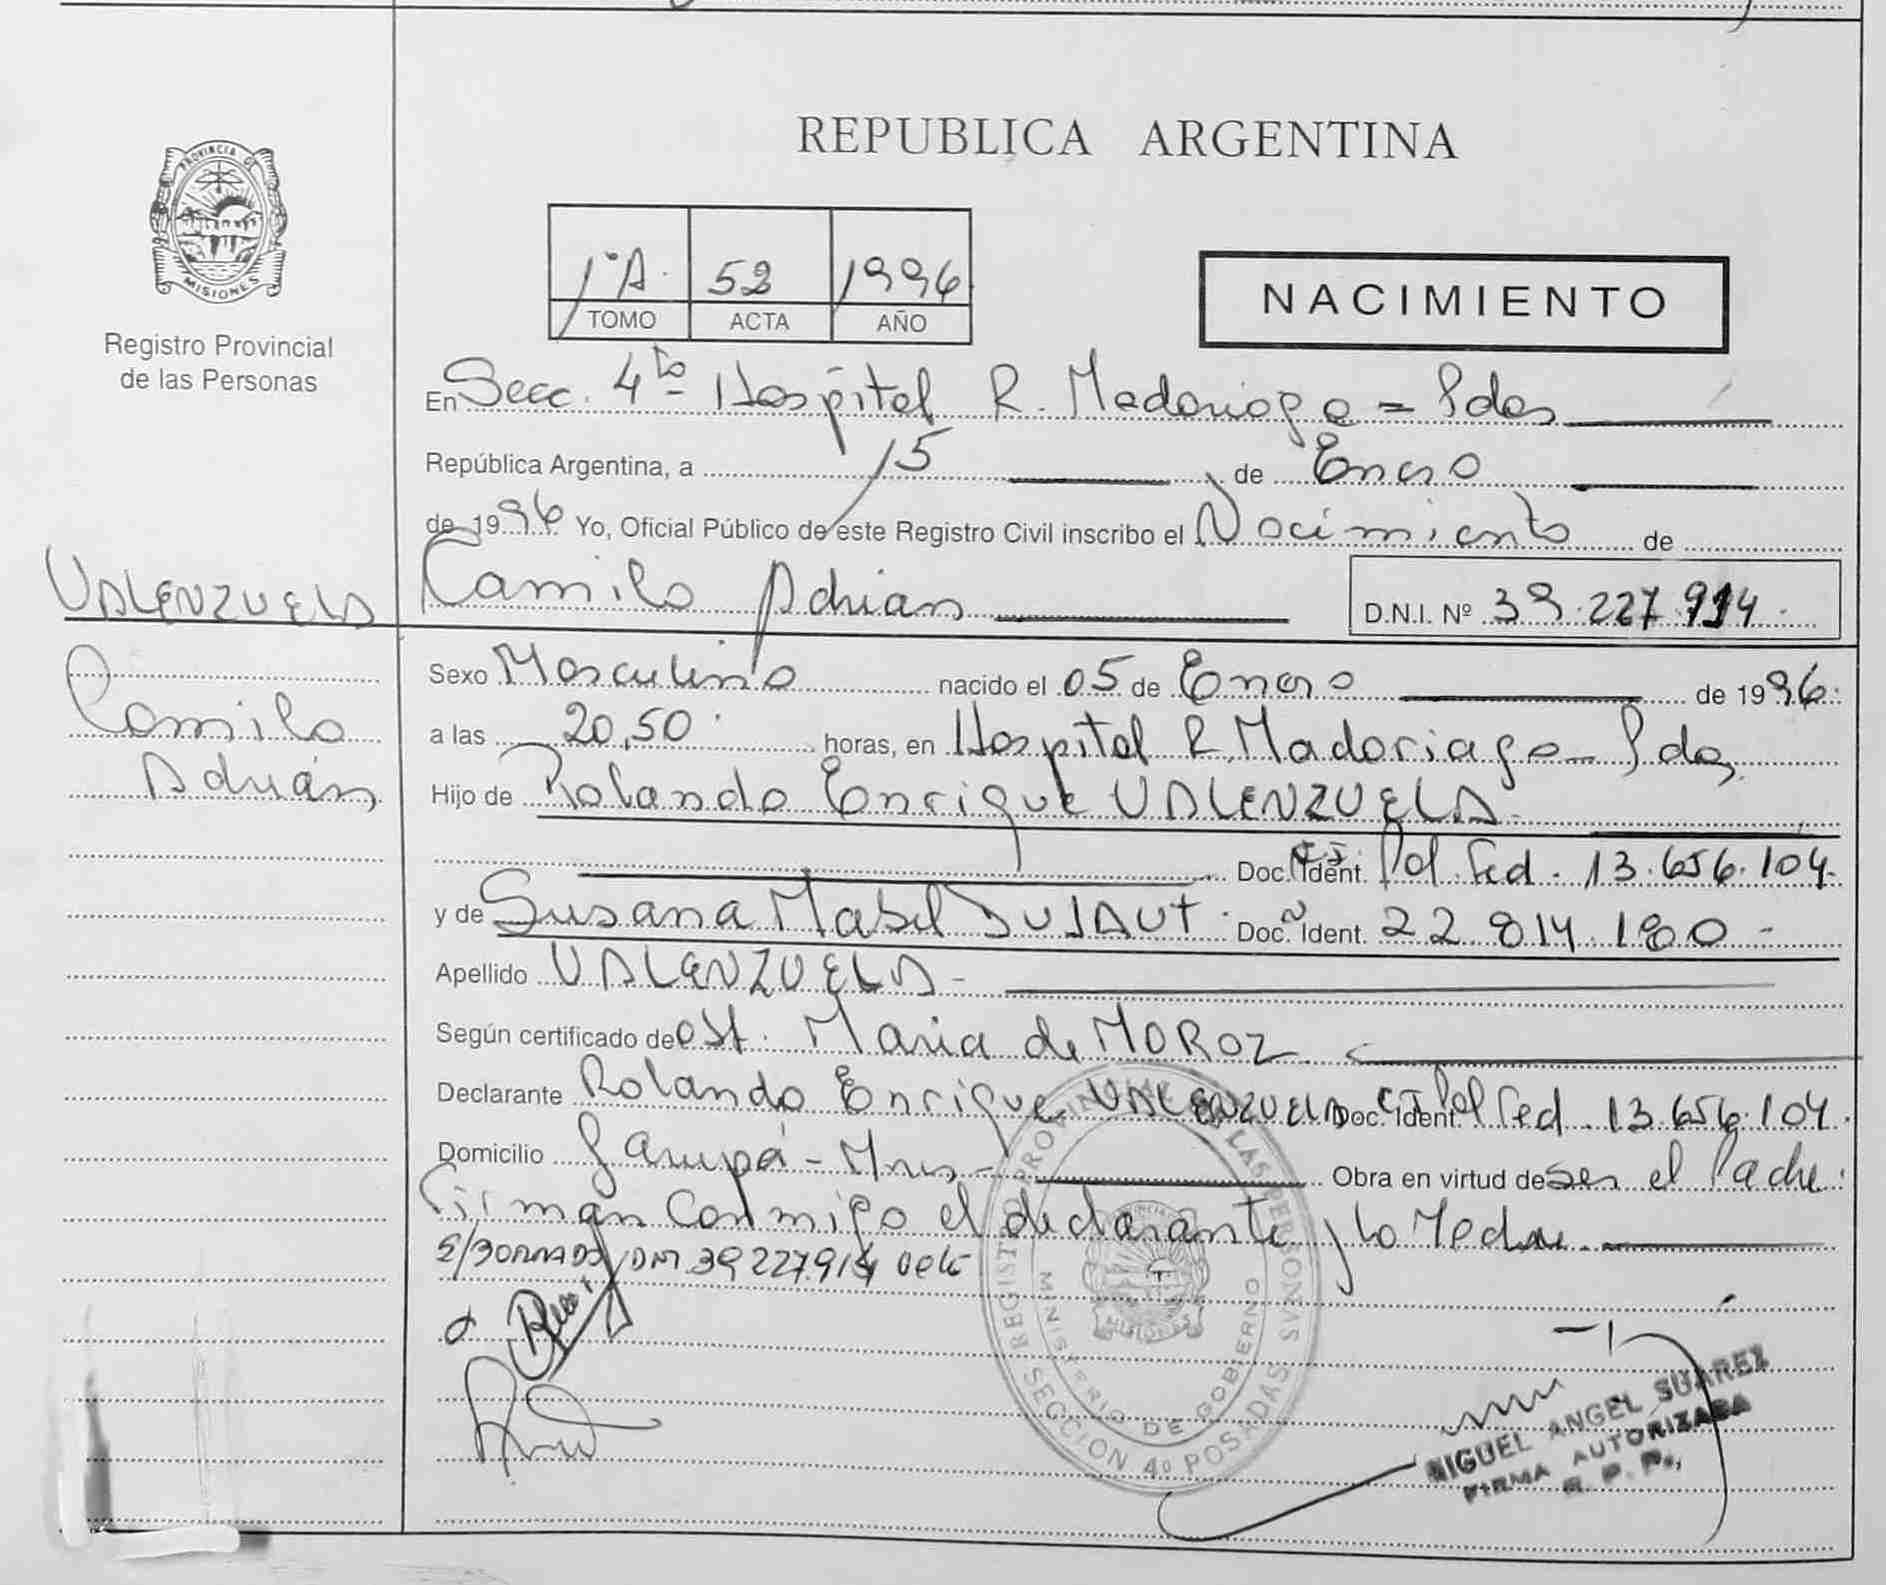 REPUBLICA ARGENTINA
PROVINCIA DE
MISIONES
Registro Provincial
de las Personas
1°A. 52 1996
TOMO ACTA AÑO
NACIMIENTO
En Secc. 4ta Hospital R. Madariaga = Pdas
República Argentina, a 15 de Enero
de 1996 Yo, Oficial Público de este Registro Civil inscribo el Nacimiento de
VALENZUELA
Camilo Adrián
Camilo Adrián D.N.I. Nº 39.227.914.
Sexo Masculino nacido el 05 de Enero de 1996.
a las 20,50 horas, en Hospital R. Madariaga - Pdas.
Hijo de Rolando Enrique VALENZUELA
Doc. Ident. C.I. Pol. Fed. 13.656.104.
y de Susana Mabel DUJAUT. Doc. Ident. 22 814 180 -
Apellido VALENZUELA -
Según certificado de Ost. Maria de MOROZ
Declarante Rolando Enrique VALENZUELA Doc. Ident. C.I. Pol Fed. 13.656.104.
Domicilio Garupá - Mnes - Obra en virtud de ser el Padre.
Firman conmigo el declarante y la Madre.
E/BORRADO/DNI 39227914 VALE
REGISTRO PROVINCIAL DE LAS PERSONAS
MINISTERIO DE GOBIERNO
MISIONES
SECCION 4º POSADAS
MIGUEL ANGEL SUAREZ
FIRMA AUTORIZADA
R. P. P.